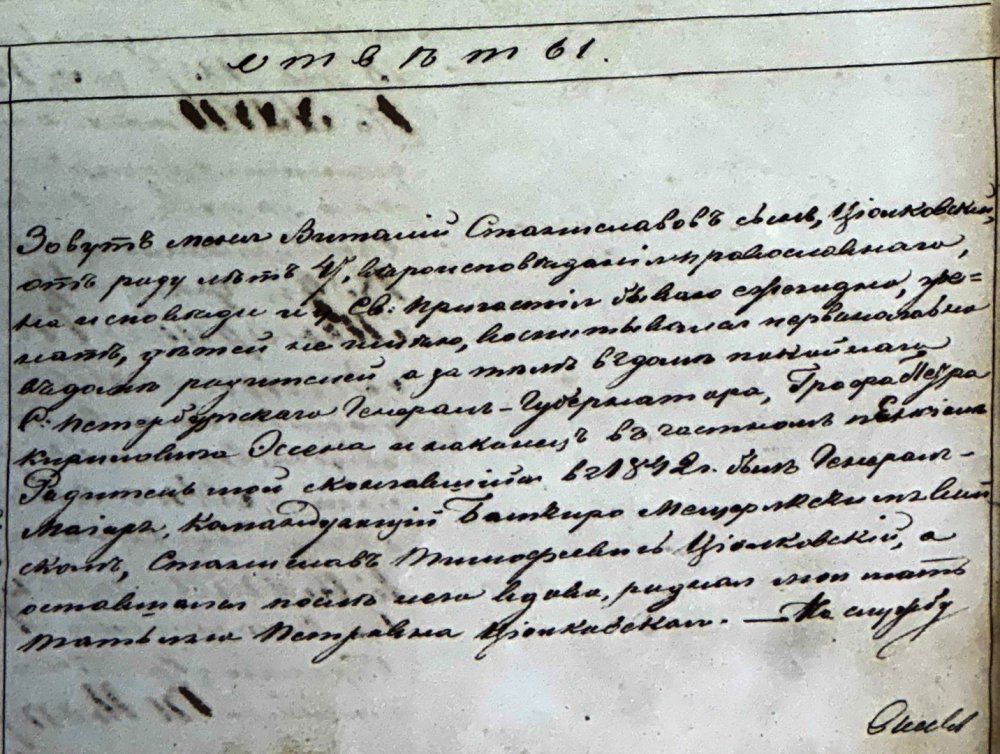 Отвѣты.
Зовутъ меня Виталій Станиславовъ сынъ, Ціолковскій,
отъ роду лѣтъ 41, вѣроисповѣданія православнаго,
на исповѣди и у Св: Причастія бываю ежегодно, же=
натъ, дѣтей не имѣю, воспитывался первоначально
въ домѣ родителей а за тѣмъ въ домѣ покойнаго
С: Петербургскаго Генералъ-Губернатора, Графа Петра
Кириловича Эссена и наконецъ въ частномъ пансіонѣ
Родитель мой скончавшійся въ 1842 г. былъ Генералъ-
Маіоръ, Командующій Башкиро Мещерякскимъ вой
скомъ, Станиславъ Тимофеевичъ Ціолковскій, а
оставшаяся послѣ него вдова, родная моя мать
Татьяна Петровна Ціолковская. — На службу